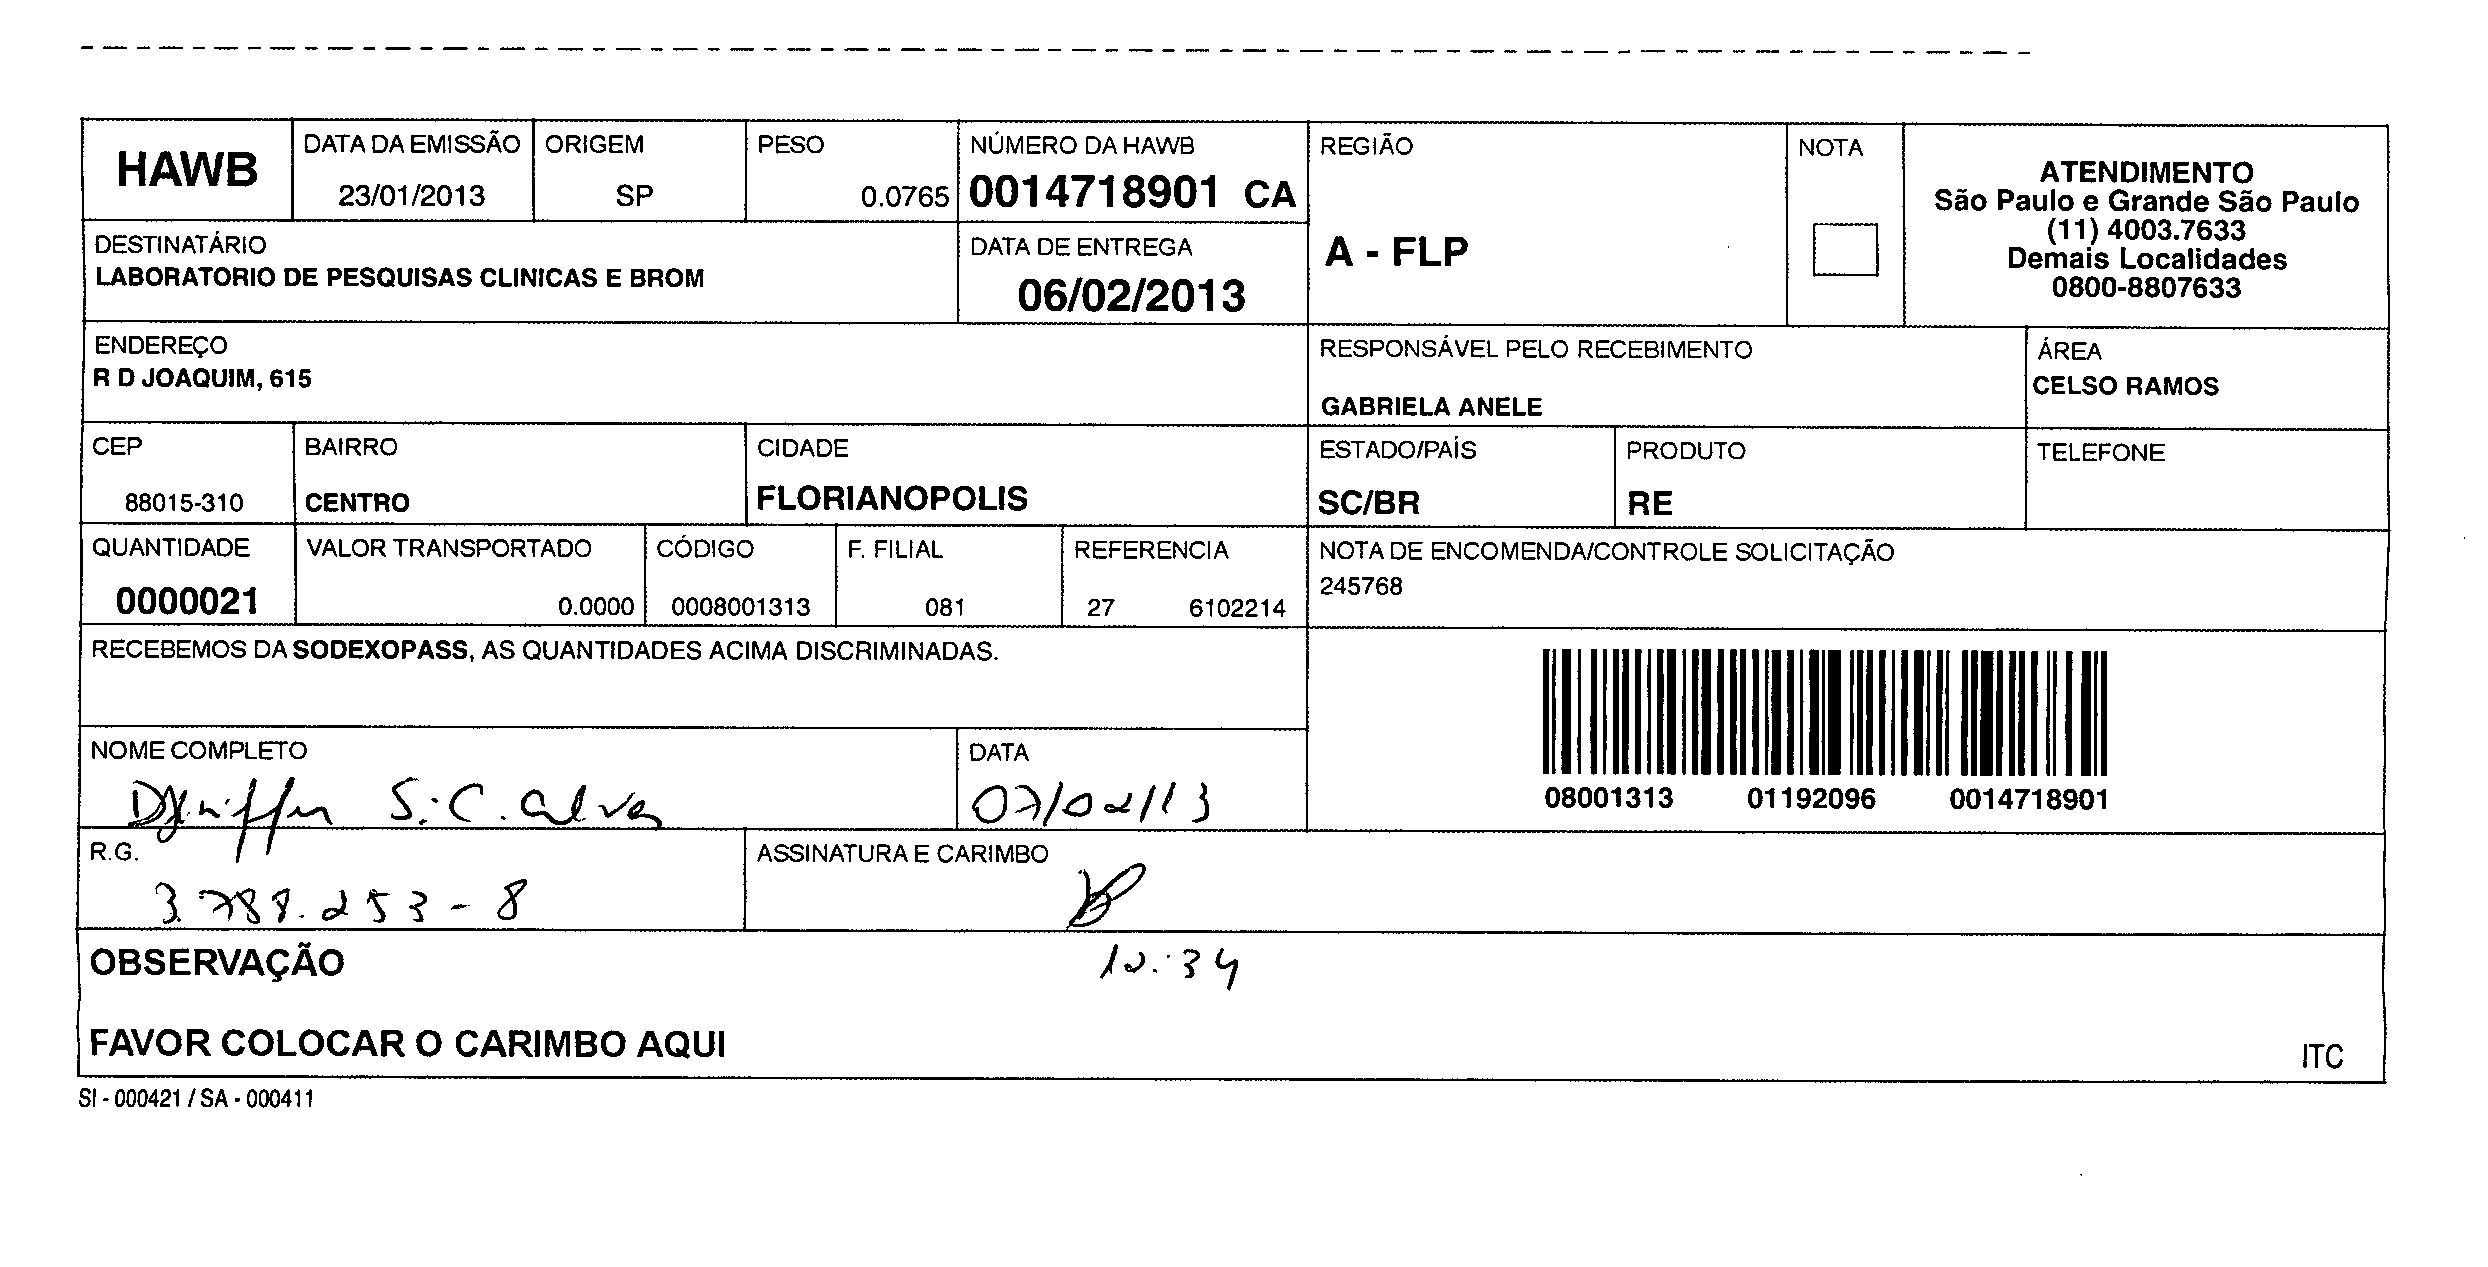 HAWB
DATA DA EMISSÃO
23/01/2013
ORIGEM
SP
PESO
0.0765
NÚMERO DA HAWB
0014718901 CA
REGIÃO
A - FLP
NOTA
ATENDIMENTO
São Paulo e Grande São Paulo
(11) 4003.7633
Demais Localidades
0800-8807633
DESTINATÁRIO
LABORATORIO DE PESQUISAS CLINICAS E BROM
DATA DE ENTREGA
06/02/2013
ENDEREÇO
R D JOAQUIM, 615
RESPONSÁVEL PELO RECEBIMENTO
GABRIELA ANELE
ÁREA
CELSO RAMOS
CEP
88015-310
BAIRRO
CENTRO
CIDADE
FLORIANOPOLIS
ESTADO/PAÍS
SC/BR
PRODUTO
RE
TELEFONE
QUANTIDADE
0000021
VALOR TRANSPORTADO
0.0000
CÓDIGO
0008001313
F. FILIAL
081
REFERENCIA
27 6102214
NOTA DE ENCOMENDA/CONTROLE SOLICITAÇÃO
245768
RECEBEMOS DA SODEXOPASS, AS QUANTIDADES ACIMA DISCRIMINADAS.
08001313 01192096 0014718901
NOME COMPLETO
S. C. Alves
DATA
07/02/13
R.G.
3.788.253-8
ASSINATURA E CARIMBO
OBSERVAÇÃO
12:34
FAVOR COLOCAR O CARIMBO AQUI
ITC
SI - 000421 / SA - 000411